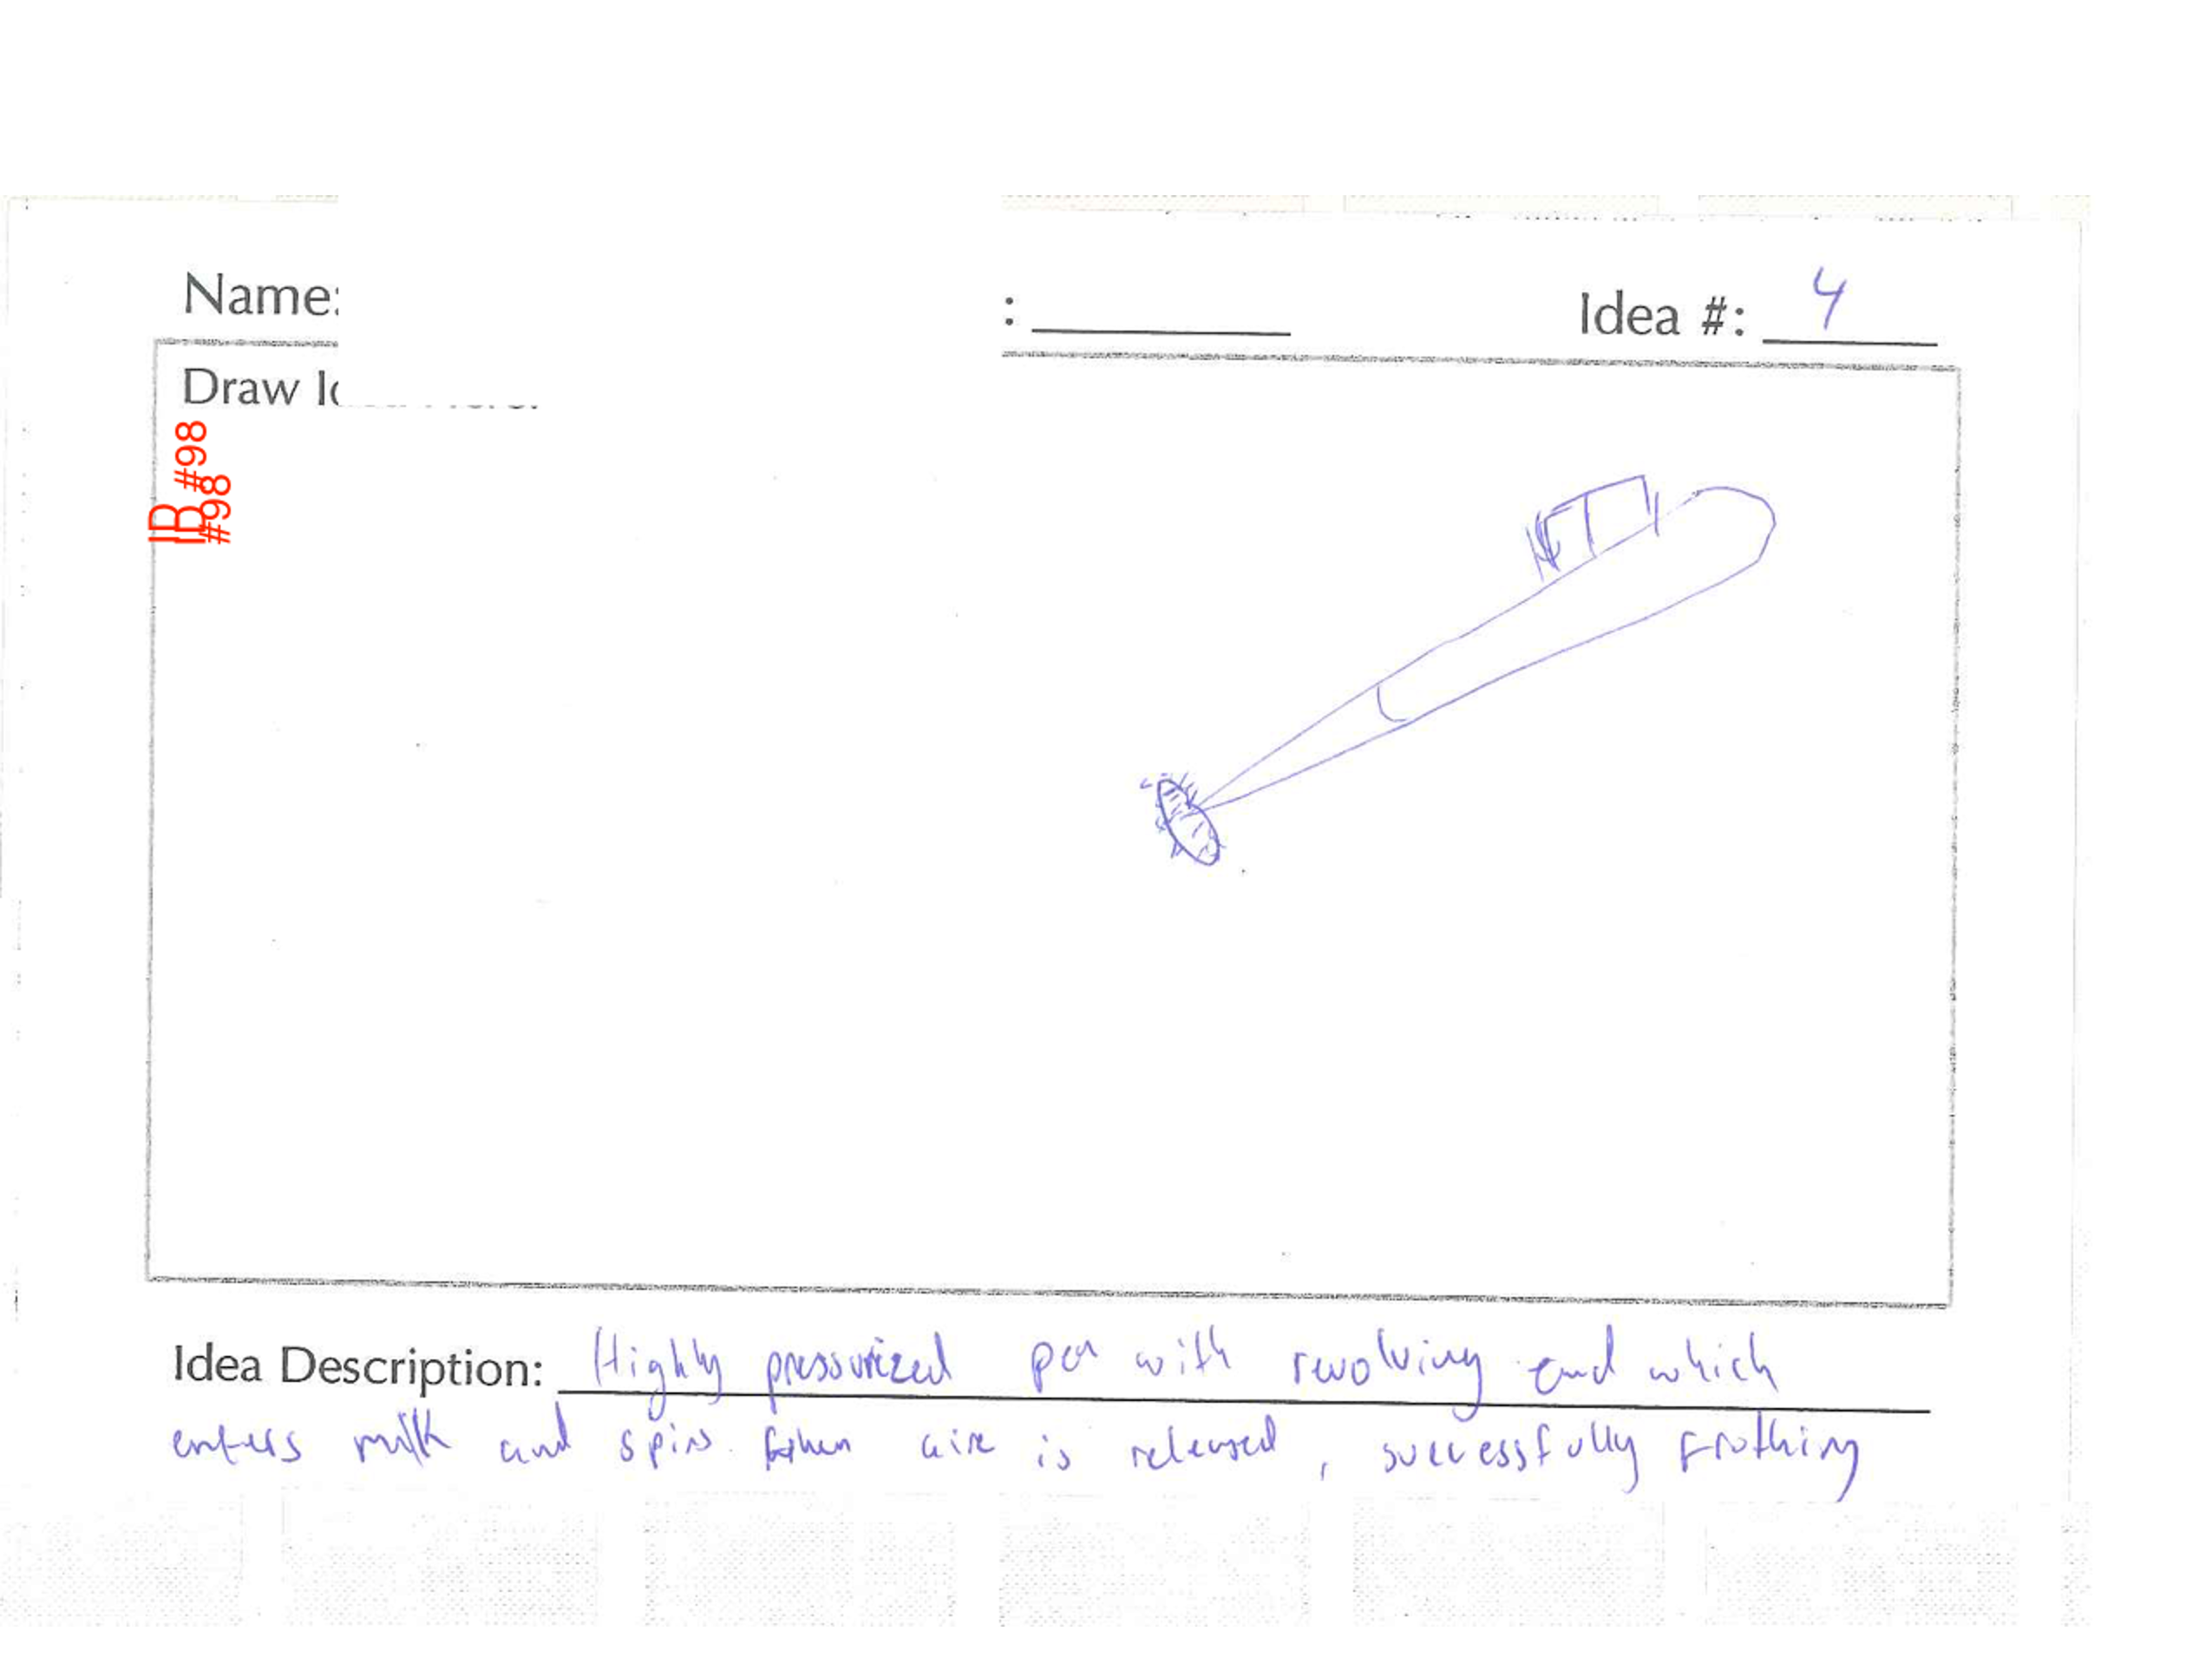 Name:
: Idea #: 4
Draw I
ID #98
ID #98
Idea Description: Highly pressurized pen with revolving end which
enters milk and spins. when aire is released, successfully frothing